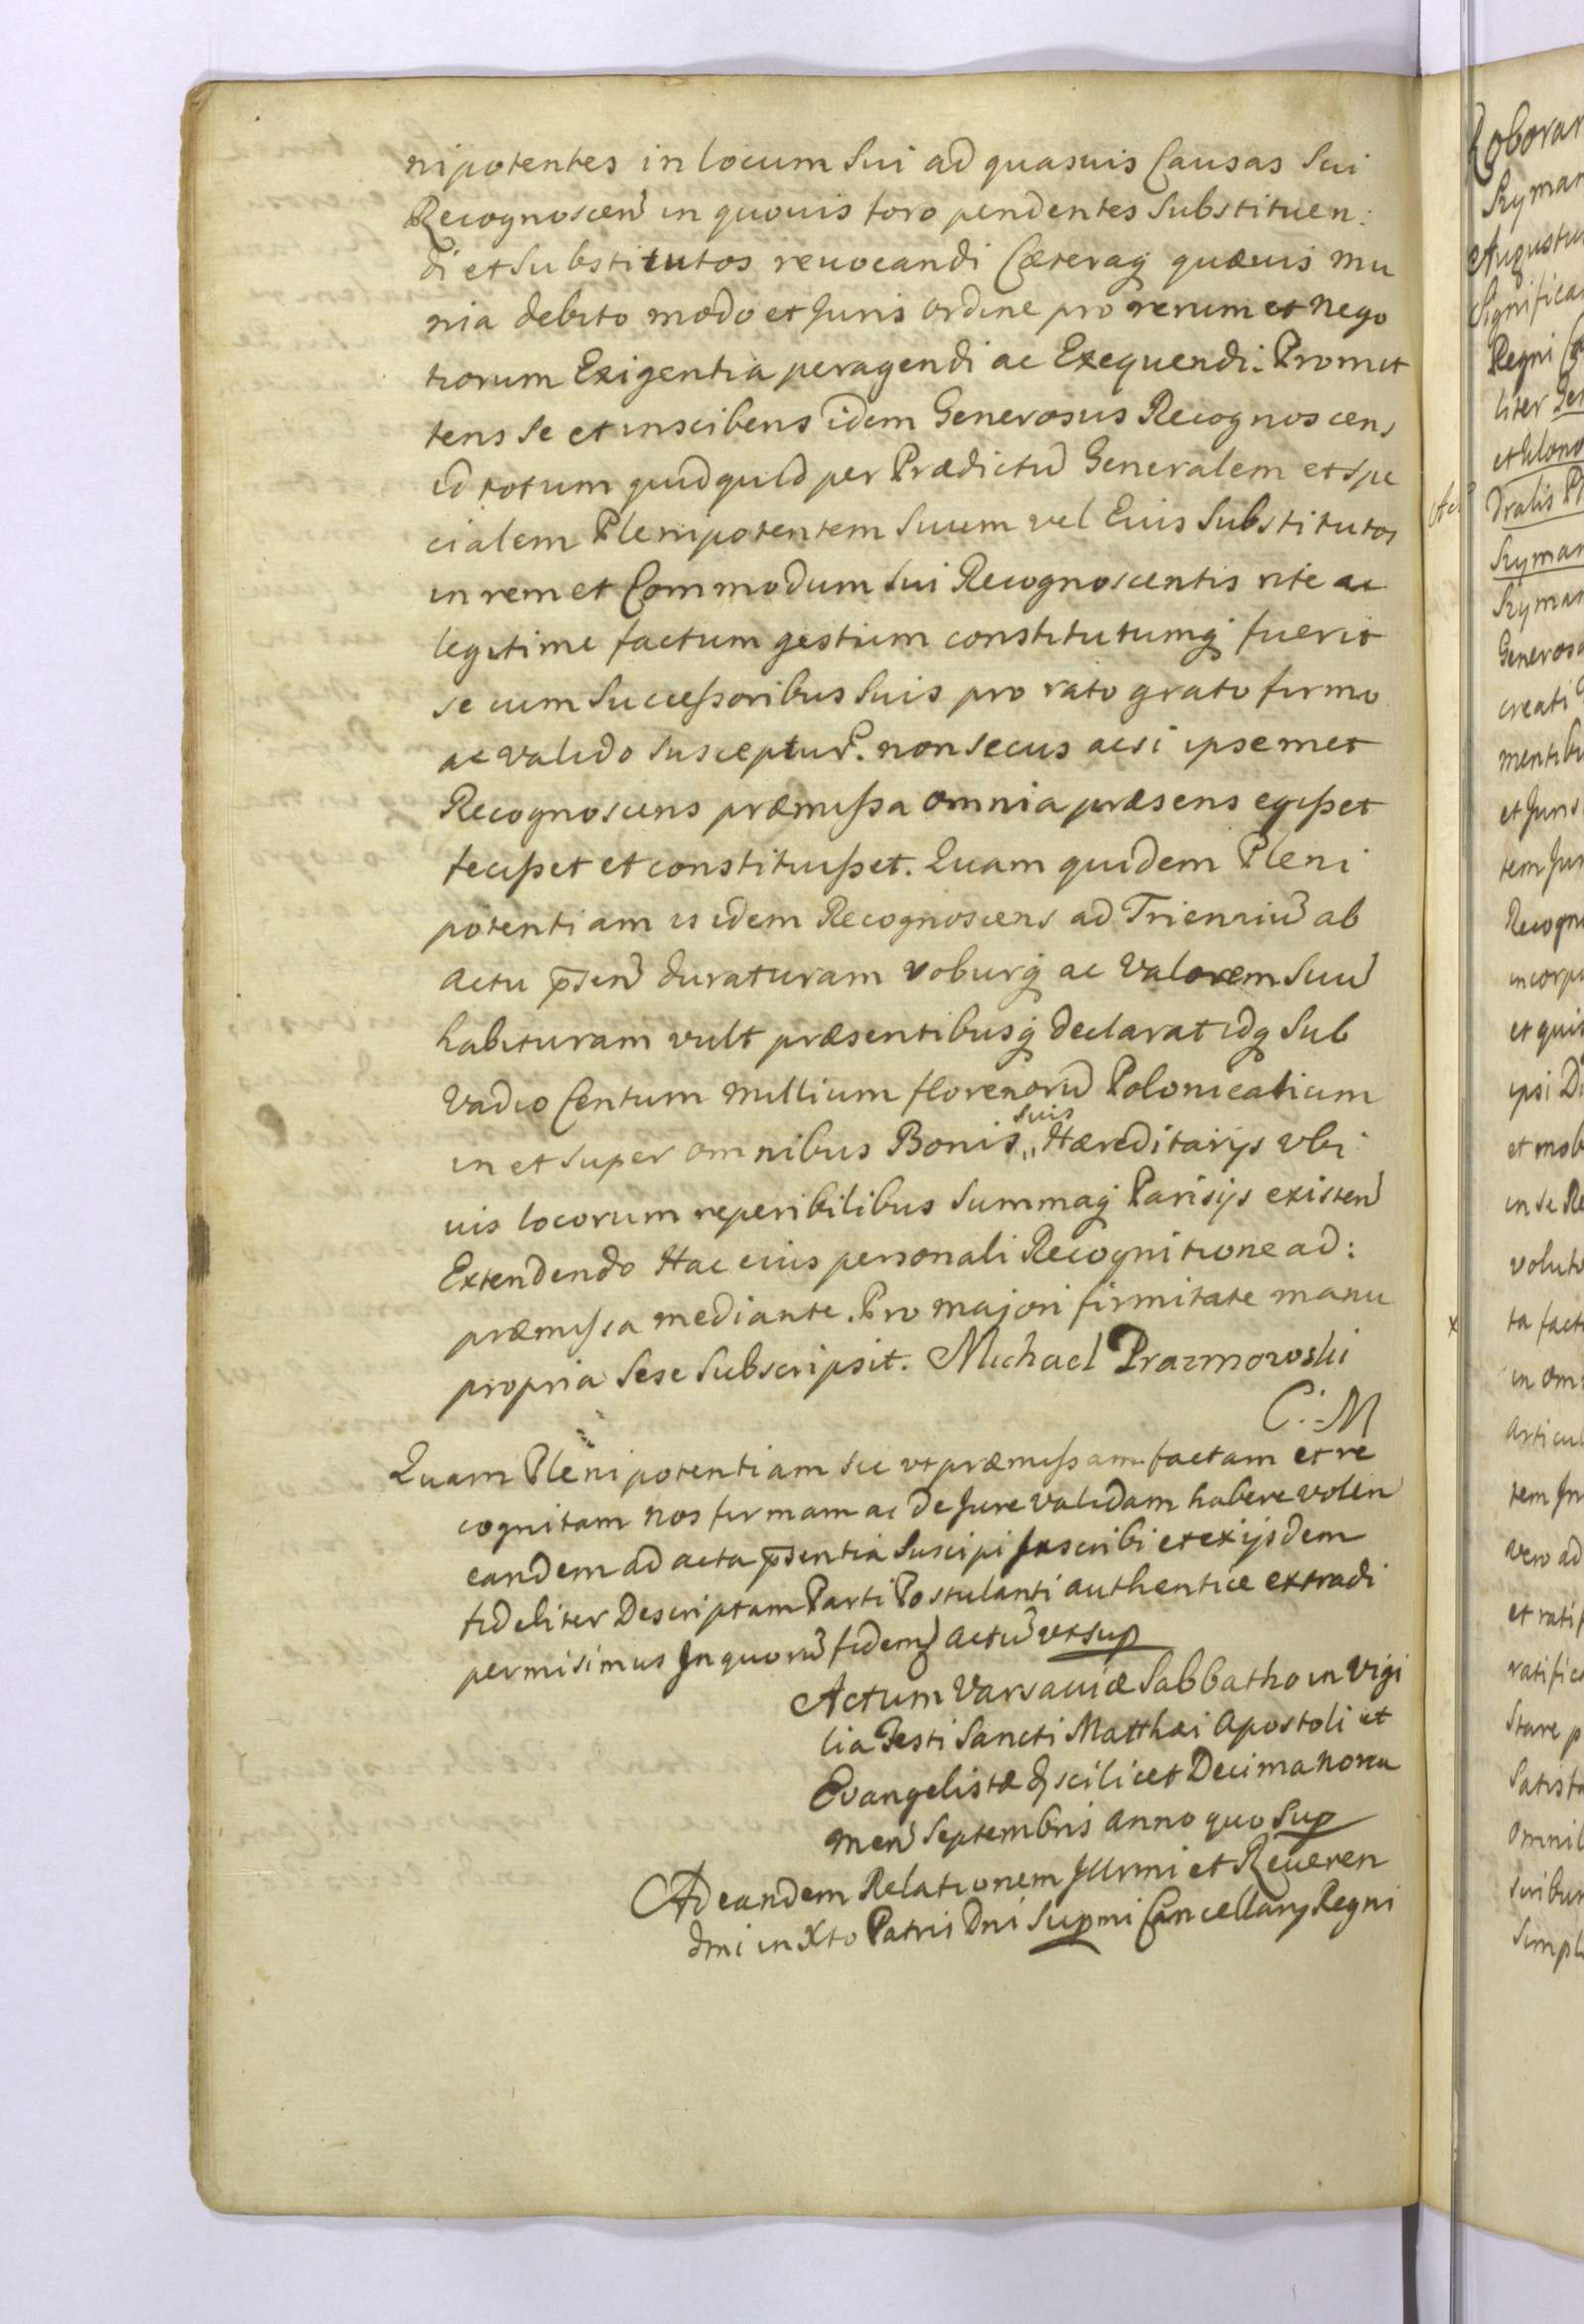 nipotentes in locum Sui ad quasuis Causas Sui
Recognoscen̄ in quouis foro pendentes Substituen:
di et Substitutos reuocandi Cæteraq; quæuis mu
nia debito modo et Juris ordine pro rerum et nego
tiorum Exigentia peragendi ac Exequendi. Promit
tens Se et inscibens idem Generosus Recognoscens
id totum quidquid per Prædictū Generalem et Spe
cialem Plenipotentem Suum vel Eius Substitutos
in rem et Commodum Sui Recognoscentis rite ac
legitime factum gestum constitutumq; fuerit
se cum Successoribus Suis pro rato grato firmo
ac valido susceptur. non secus acsi ipsemet
Recognoscens præmissa omnia præsens egisset
fecisset et constituisset. Quam quidem Pleni
potentiam is idem Recognoscens ad Trienniū ab
actu p̄sen̄ duraturam roburq; ac Valorem Suū
habituram vult præsentibusq; declarat idq; Sub
Vadio Centum millium florenorū Polonicalium
in et super omnibus Bonis suis Hæreditarijs vbi
uis locorum reperibilibus Summaq; Parisijs existen̄
Extendendo Hac eius personali Recognitione ad:
præmissa mediante. Pro majori firmitate manu
propria Sese Subscripsit. Michael Prazmowski
C: M
Quam Plenipotentiam Sic vt præmissam factam et re
cognitam nos firmam ac de Jure validam habere volen̄
eandem ad acta p̄sentia Suscipi Inscribi et ex ijsdem
fideliter Descriptam Parti Postulanti authentice extradi
permisimus In quorū fidem actū vt sup
Actum Varsauiæ Sabbatho in Vigi
lia Festi Sancti Matthæi Apostoli et
Evangelistæ scilicet Decima nona
men̄ Septembris Anno quo Sup
Ad eandem Relationem Jllrmi et Reueren
dmi in Xto Patris Dni Supmi Cancellarij Regni